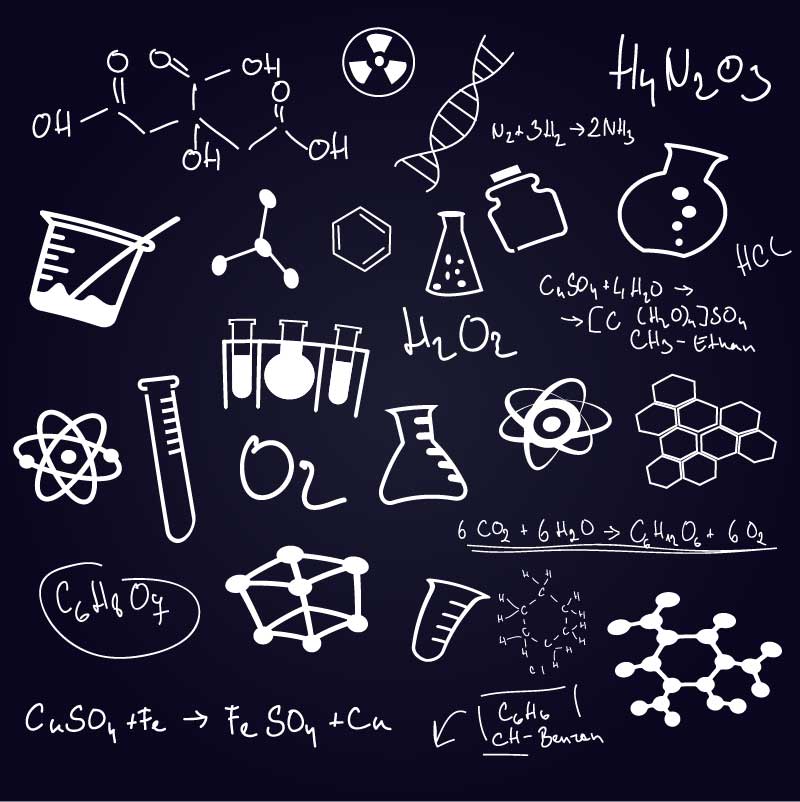 O O OH
OH O
OH OH
H4N2O3
N2+3H2→2NH3
HCL
CuSO4+4H2O →
→[C (H2O)4]SO4
CH3-Ethan
H2O2
O2
6 CO2 + 6H2O → C6H12O6 + 6O2
C6H8O7
H H
H C H
H C C H
H C C H
H C H
H H
Cl
CuSO4+Fe → FeSO4+Cu
C6H6
CH-Benzon